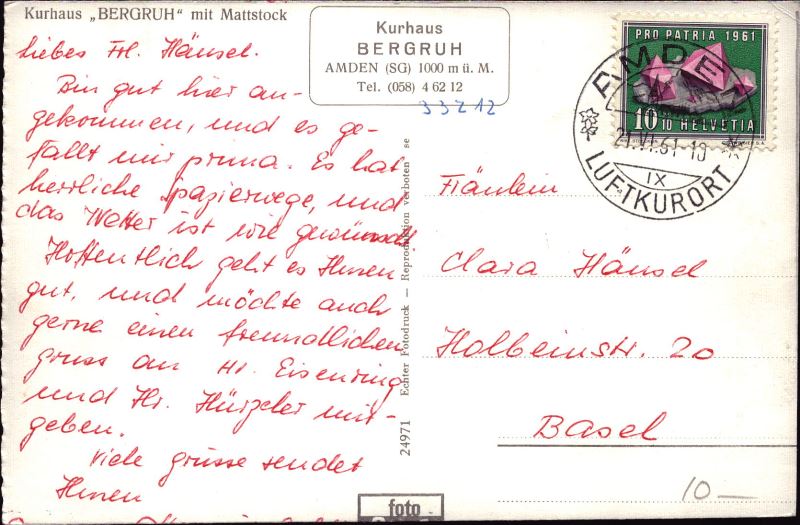 Kurhaus „BERGRUH“ mit Mattstock
Kurhaus
BERGRUH
AMDEN (SG) 1000 m ü. M.
Tel. (058) 4 62 12
3 3 2 1 2
PRO PATRIA 1961
10
10 HELVETIA
AMDEN
21.VI.61-18
IX
LUFTKURORT
liebes Frl. Hänsel.
Bin gut hier an-
gekommen, und es ge-
fällt mir prima. Es hat
herrliche Spazierwege, und
das Wetter ist wie gewünscht.
Hoffentlich geht es Ihnen
gut, und möchte auch
gerne einen freundlichen
gruss an Hr. Eisenring
und Hr. Hürzeler mit-
geben.
Viele grüsse sendet
Ihnen
24971 Echter Fotodruck — Reproduktion verboten se
Fräulein
Clara Hänsel
Holbeinstr. 20
Basel
10 —
foto